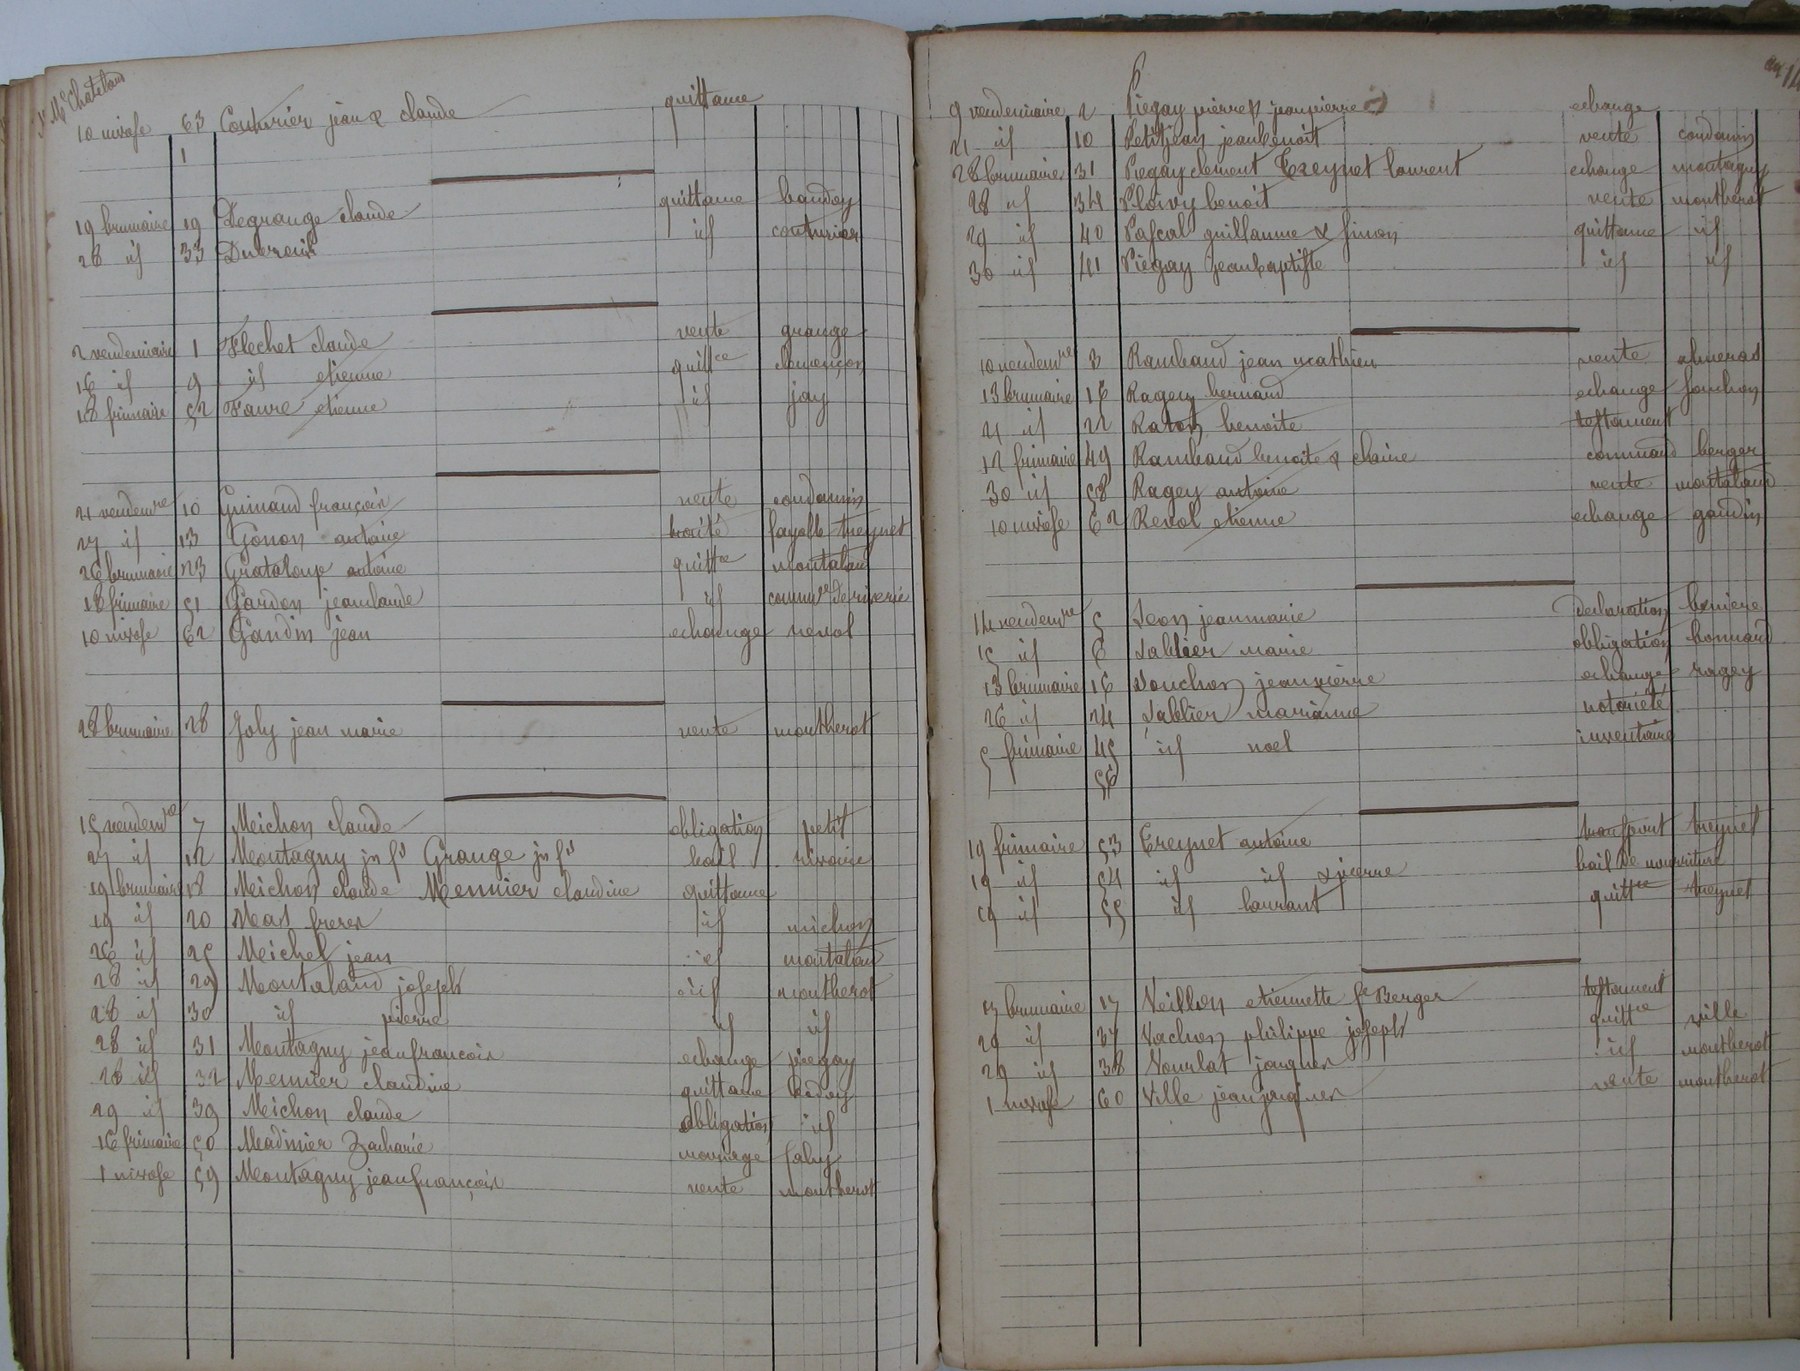 Me Chatelland
10 nivose 63 Couturier jean & claude quittance
1
19 brumaire 19 Degrange claude quittance baudoy
28 id 33 Ducreux id couturier
2 vendemiaire 1 Flechet claude vente grange
16 id 9 id etienne quittce clemençon
18 frimaire 52 Favre etienne id jay
21 vendemre 10 Guinand françois vente condamin
27 id 13 Gonon antoine traité fayolle treynet
26 brumaire 23 Grataloup antoine quittce montaland
18 frimaire 51 Gardon jeanclaude id commne de riverie
10 nivose 62 Gaudin jean echange revol
28 brumaire 28 Joly jean marie vente montherot
15 vendemre 7 Meichon claude obligation petit
27 id 12 Montagny jn fs Grange jn fs bail rivoire
19 brumaire 18 Meichon claude Meunier claudine quittance
19 id 20 Mas freres id michon
26 id 25 Meichel jean id montaland
28 id 29 Montaland joseph id montherot
28 id 30 id pierre id id
28 id 31 Montagny jeanfrancois echange piegay
28 id 32 Meunier claudine quittance badoy
29 id 39 Meichon claude obligation id
16 frimaire 50 Madinier Zacharie mariage faby
1 nivose 59 Montagny jeanfrançois vente montherot
6
an 14
9 vendemiaire 2 Piegay pierre & jeanpierre echange
21 id 10 Petitjean jeanbenoit vente condamin
28 brumaire 31 Piegay clement Treynet laurent echange montagny
28 id 34 Ploivy benoit vente montherot
29 id 40 Pascal guillaume & simon quittance id
30 id 41 Piegay jeanbaptiste id id
10 vendemre 3 Rambaud jean mathieu vente almeras
13 brumaire 16 Ragey bernard echange souchon
21 id 22 Raton benoite testament
12 frimaire 49 Rambaud benoite & claire command berger
30 id 58 Ragey antoine vente montaland
10 nivose 62 Revol etienne echange gaudin
14 vendemre 5 Seon jeanmarie declaration beniere
15 id 6 Sablier marie obligation bonnard
13 brumaire 16 Souchon jeanpierre echange ragey
26 id 24 Sablier marianne notoriété
5 frimaire 45 id noel inventaire
56
19 frimaire 53 Treynet antoine transport treynet
19 id 54 id id & pierre bail de nourriture
19 id 55 id laurant quittce treynet
13 brumaire 17 Veillon etiennette fe Berger testament
29 id 37 Vachon philippe joseph quittce ville
29 id 38 Vourlat jacques id montherot
1 nivose 60 Ville jeanjacques vente montherot